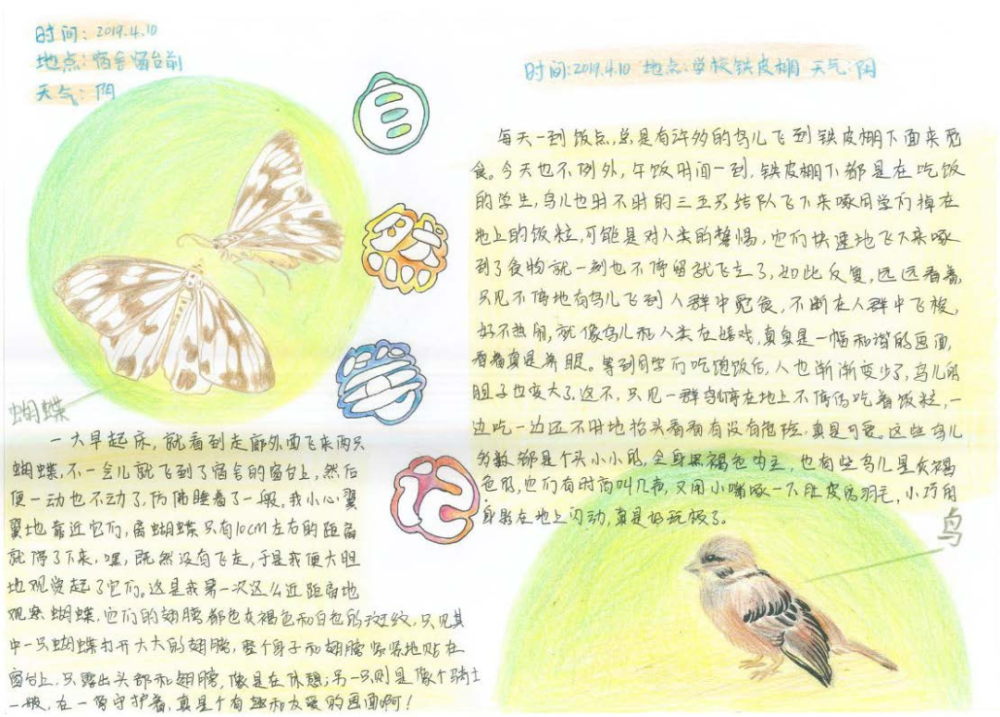 时间:2019.4.10
地点:宿舍窗台前
天气:阴
自
然
笔
记
蝴蝶
一大早起床,就看到走廊外面飞来两只
蝴蝶,不一会儿就飞到了宿舍的窗台上,然后
便一动也不动了,仿佛睡着了一般。我小心翼
翼地靠近它们,离蝴蝶只有10cm左右的距离
就停了下来,嘿,既然没有飞走,于是我便大胆
地观赏起了它们,这是我第一次这么近距离地
观察蝴蝶,它们的翅膀都也有褐色和白色的斑纹,只见其
中一只蝴蝶打开大大的翅膀,整个身子和翅膀紧紧地贴在
窗台上,只露出头部和翅膀,像是在休憩;另一只则是像个骑士
一般,在一旁守护着,真是个有趣和友爱的画面啊!
时间:2019.4.10 地点:学校铁皮棚 天气:阴
每天一到饭点,总是有许多的鸟儿飞到铁皮棚下面来觅
食。今天也不例外,午饭时间一到,铁皮棚下都是在吃饭
的学生,鸟儿也时不时的三五只结队飞下来啄同学们掉在
地上的饭粒,可能是对人类的警惕,它们快速地飞下来啄
到了食物就一刻也不停留就飞走了,如此反复,远远看着,
只见不停地有鸟儿飞到人群中觅食,不断在人群中飞梭,
好不热闹,就像鸟儿和人类在嬉戏,真真是一幅和谐的画面,
看着真是养眼。等到同学们吃饱饭后,人也渐渐变少了,鸟儿的
胆子也变大了,这不,只见一群鸟停在地上不停的吃着饭粒,一
边吃一边还不时地抬头看看有没有危险,真是可爱。这些鸟儿
多数都是个头小小的,全身黑褐色为主,也有些鸟儿是灰褐
色的,它们有时高叫几声,又用小嘴啄一下肚皮的羽毛,小巧的
身影在地上闪动,真是好玩极了。
鸟